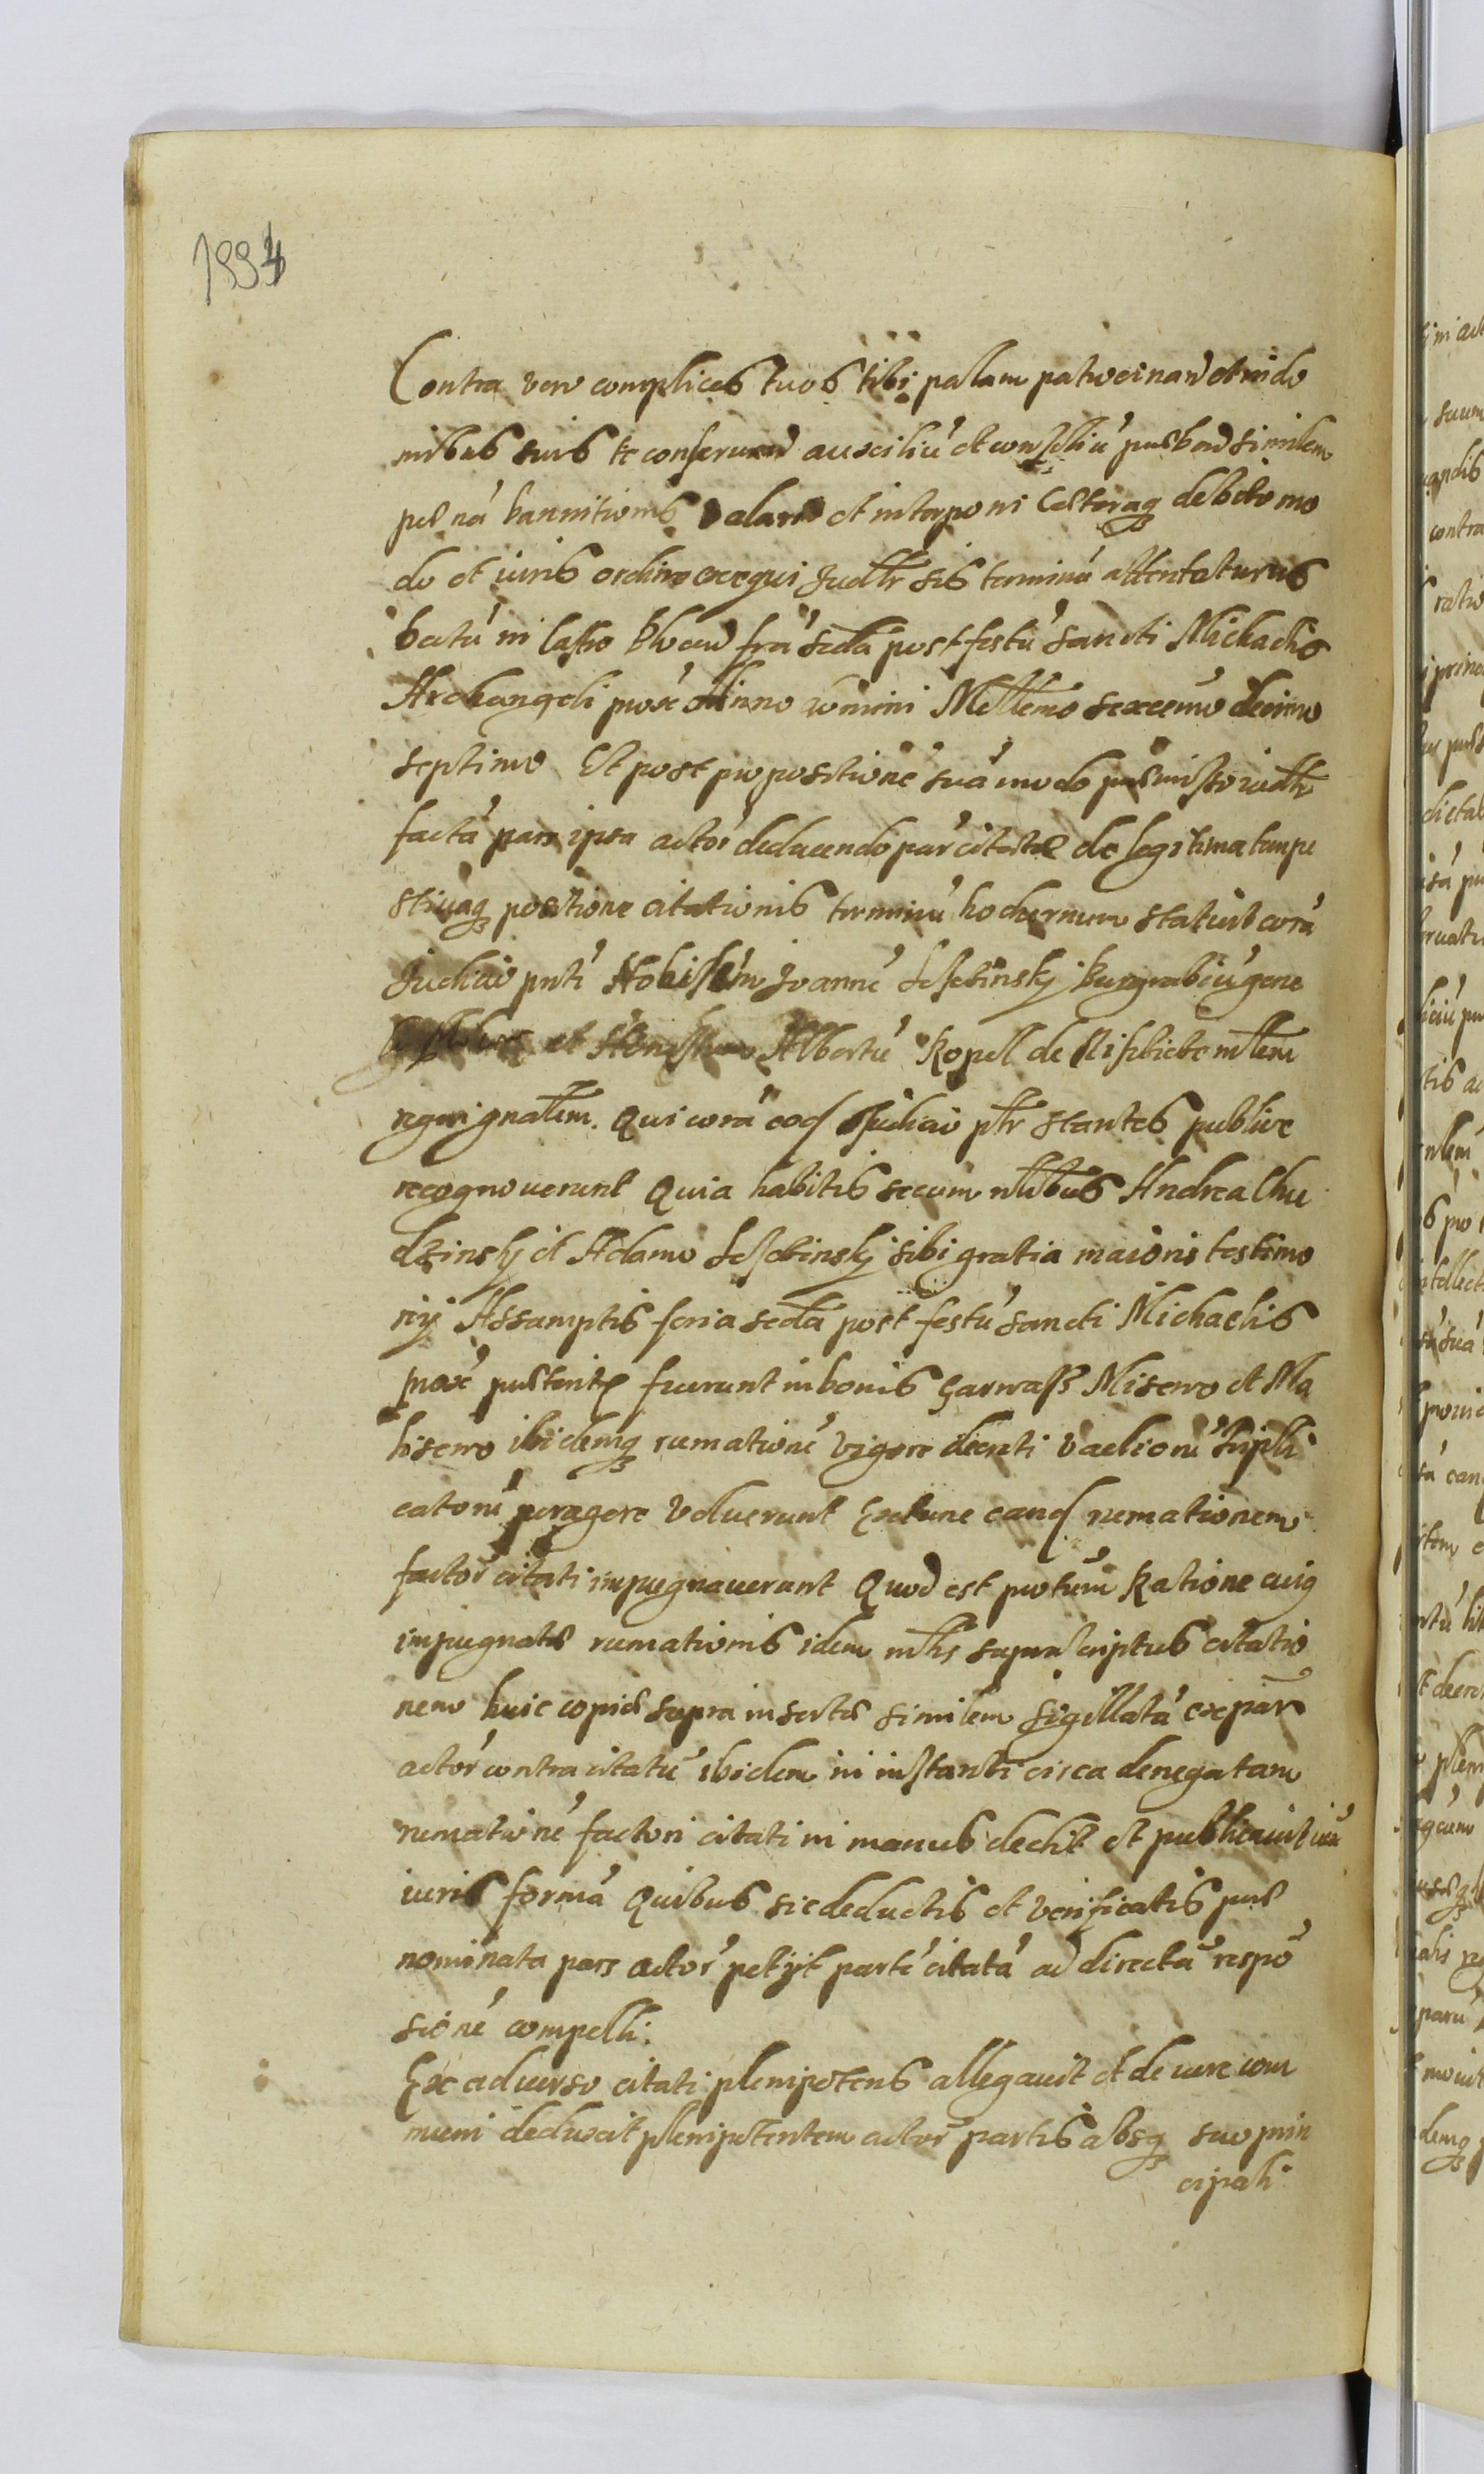 1994
Contra vero complices tuos tibi palam patrocinand et in do
mibus suis te conseruand auxiliū et consiliū praebend similem
poenā bannitionis et interponi Caeteraq debito mo
do et iuris ordine exequi Judltr sis terminū attentaturus
in Castro frā scda post festū Sancti Michaelis
Archangeli prox Anno Domini Mlltemo sexcemo decimo
septimo Et post propositione suā modo praemisso iudltr
factā pars ipsa actor deducendo par citatae de legitima tempe
stivaq positione citationis terminū hodiernum statuit corā
Judicio pnti Nobilem Joannē Burgrabiū gene
et Albertū Kopel de mltem
regni gnalem. Qui corā eod Judicio pltr stantes publice
recognouerunt Quia habitis secum nlibus Andrea Chu
dzinskj et Adamo sibi gratia maioris testimo
nij Assumptis feria scda post festū Sancti Michaelis
prox praeterite fuerunt in bonis Garwass Misewo et Ma
lisewo ibidemq rumationē vigore decreti
catorū peragere voluerunt Extunc eand rumationem
factor citati impugnauerunt Quod est protum Ratione cuig
impugnatae rumationis idem mltis suprascriptus citatio
nem huic copiae supra insertae similem sigillatā ex par
actor contra citatū ibidem in instanti circa denegatam
rumationē factori citati in manus dedit et publicauit iux
iuris formā Quibus sic deductis et verificatis prae
nominata pars actor petijt partē citatā ad directā respō
sionē compelli.
Ex aduerso citati plenipotens allegauit et de iure com
muni deduxit plenipotentem actor partis absq suo prin
cipali